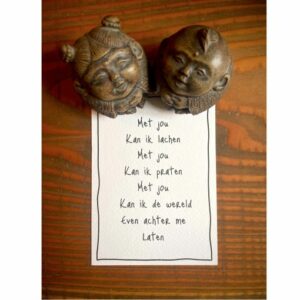 Met jou
Kan ik lachen
Met jou
Kan ik praten
Met jou
Kan ik de wereld
Even achter me
Laten